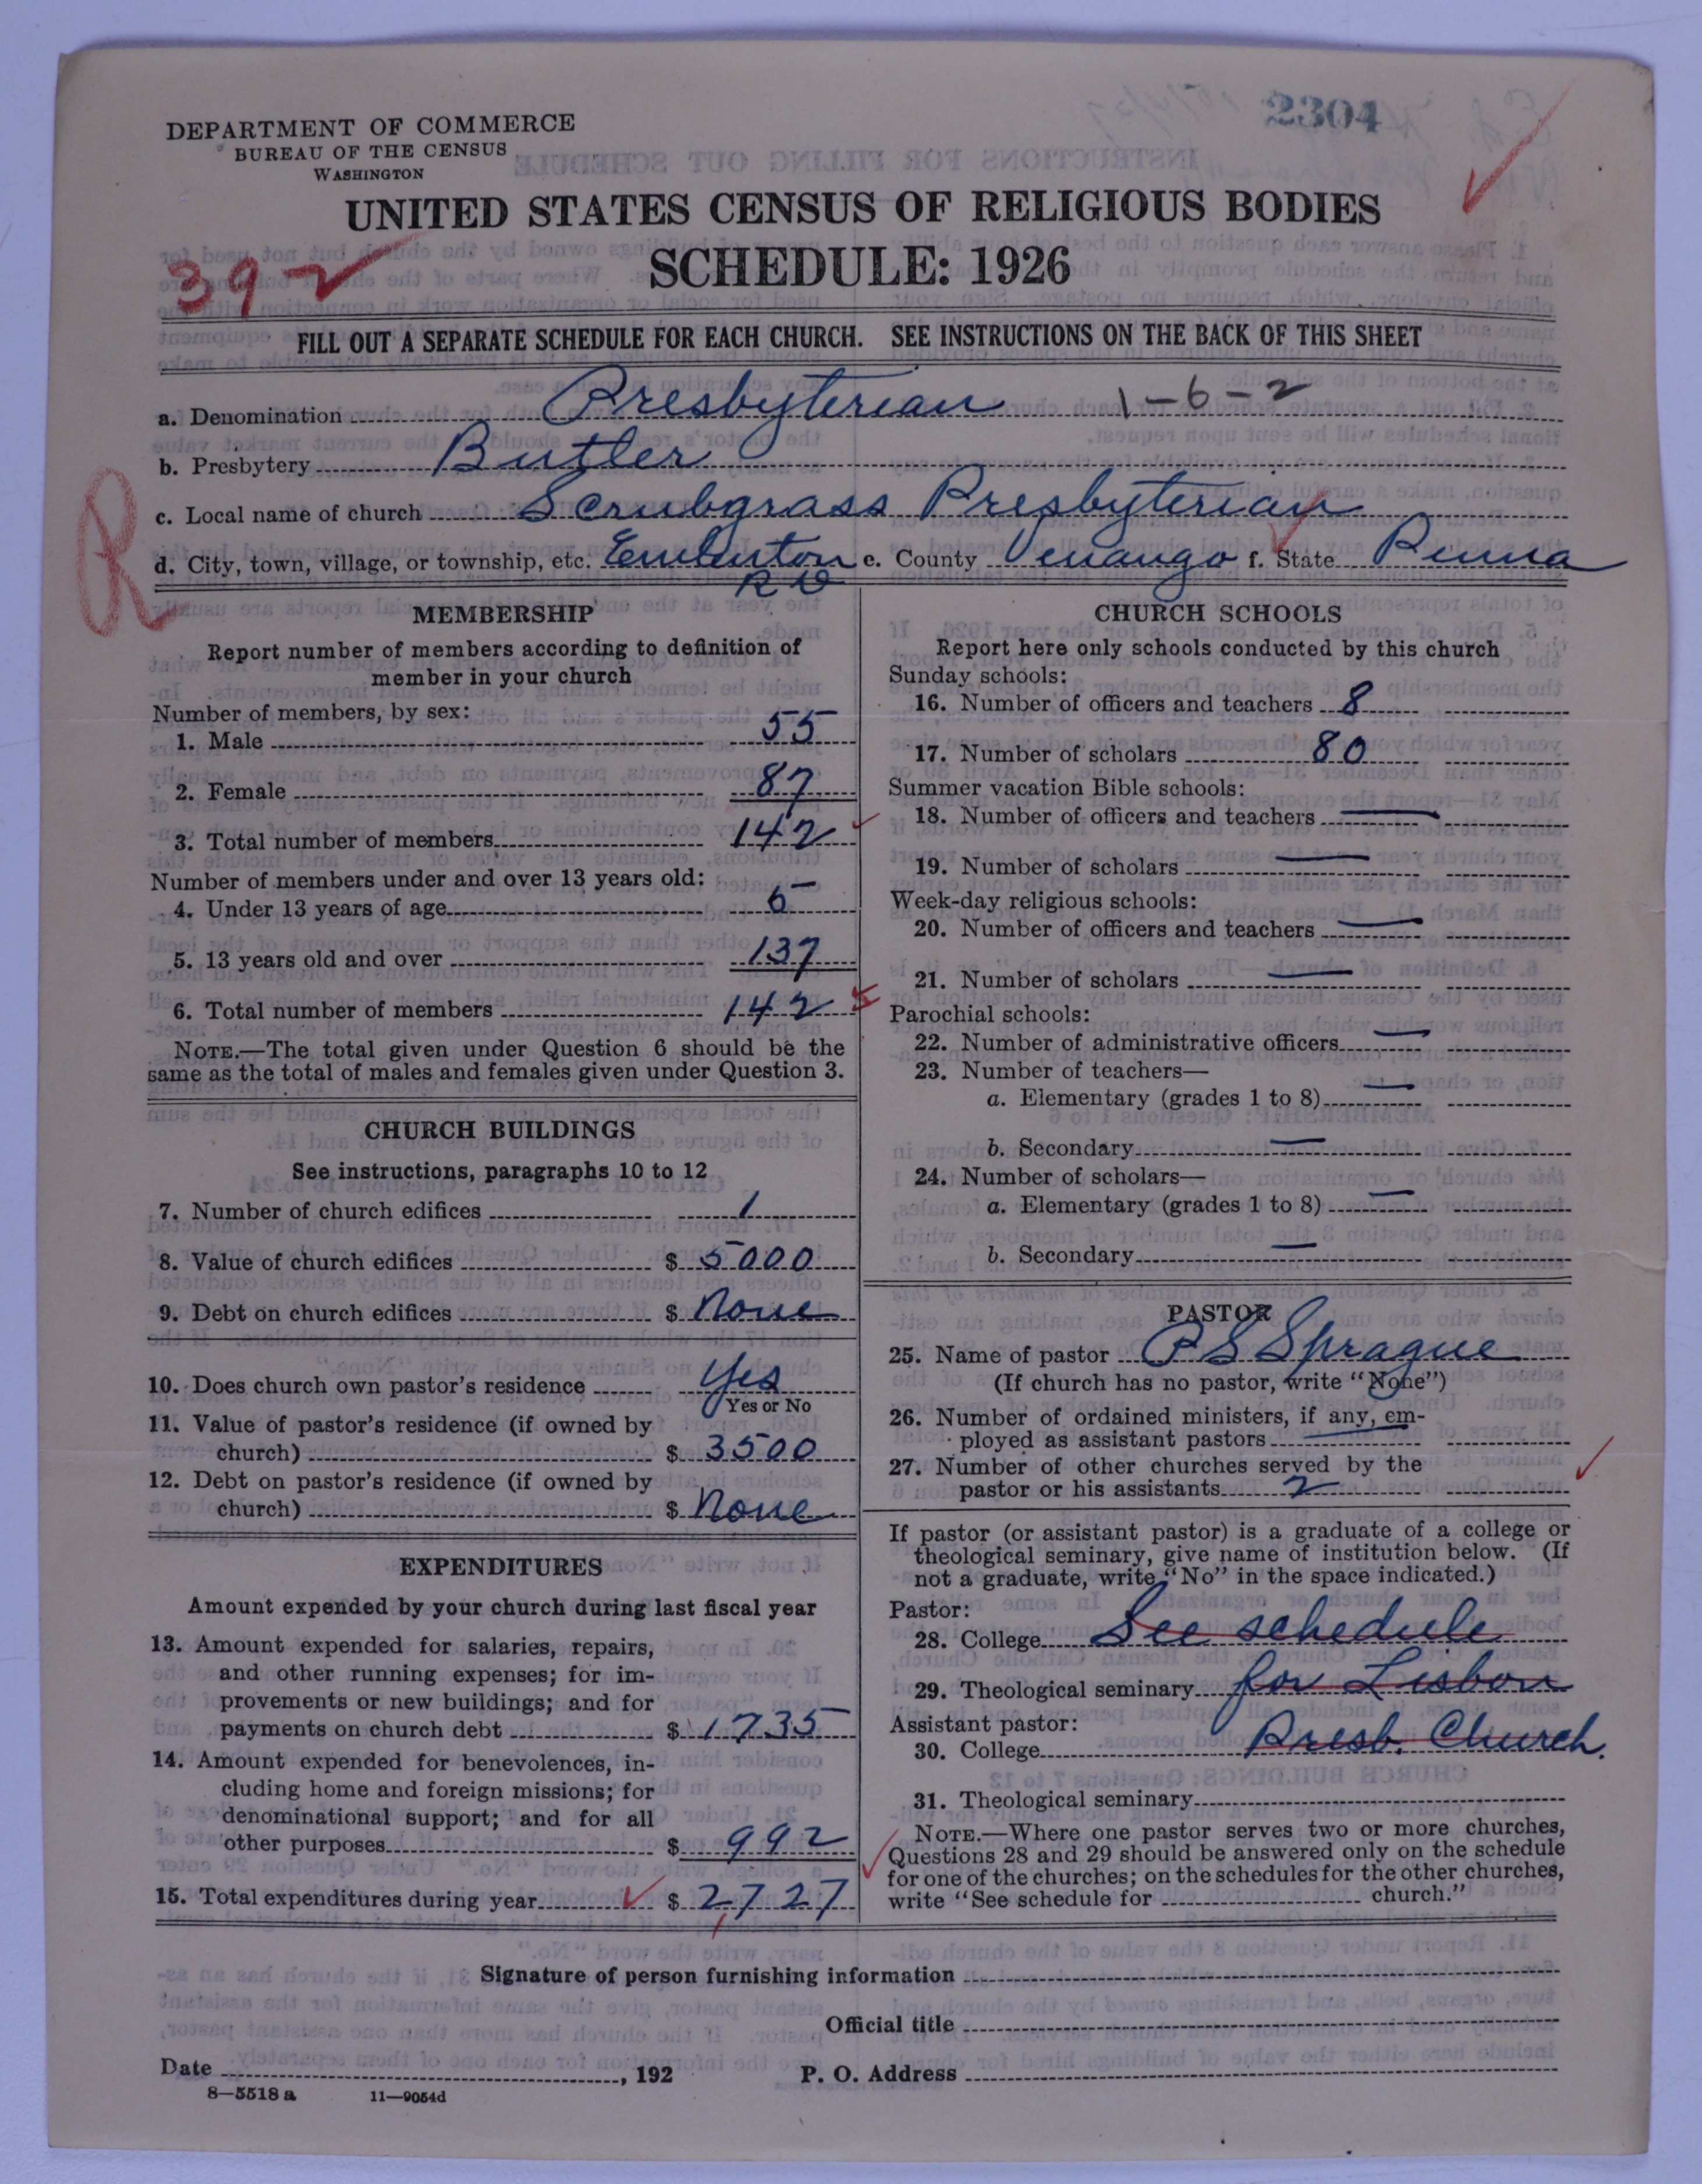 2304
DEPARTMENT OF COMMERCE
BUREAU OF THE CENSUS
WASHINGTON
UNITED STATES CENSUS OF RELIGIOUS BODIES
SCHEDULE: 1926
392
FILL OUT A SEPARATE SCHEDULE FOR EACH CHURCH. SEE INSTRUCTIONS ON THE BACK OF THIS SHEET
a. Denomination Presbyterian 1-6-2
b. Presbytery Butler
c. Local name of church Scrubgrass Presbyterian
d. City, town, village, or township, etc. Emlenton e. County Venango f. State Penna
R D
R
MEMBERSHIP
Report number of members according to definition of
member in your church
Number of members, by sex:
1. Male 55
2. Female 87
3. Total number of members 142
Number of members under and over 13 years old:
4. Under 13 years of age 5
5. 13 years old and over 137
6. Total number of members 142
NOTE.—The total given under Question 6 should be the
same as the total of males and females given under Question 3.
CHURCH BUILDINGS
See instructions, paragraphs 10 to 12
7. Number of church edifices 1
8. Value of church edifices $ 5000
9. Debt on church edifices $ None
10. Does church own pastor's residence Yes
Yes or No
11. Value of pastor's residence (if owned by
church) $ 3500
12. Debt on pastor's residence (if owned by
church) $ None
EXPENDITURES
Amount expended by your church during last fiscal year
13. Amount expended for salaries, repairs,
and other running expenses; for im-
provements or new buildings; and for
payments on church debt $ 1735
14. Amount expended for benevolences, in-
cluding home and foreign missions; for
denominational support; and for all
other purposes $ 992
15. Total expenditures during year $ 2,727
CHURCH SCHOOLS
Report here only schools conducted by this church
Sunday schools:
16. Number of officers and teachers 8
17. Number of scholars 80
Summer vacation Bible schools:
18. Number of officers and teachers —
19. Number of scholars —
Week-day religious schools:
20. Number of officers and teachers —
21. Number of scholars —
Parochial schools:
22. Number of administrative officers —
23. Number of teachers—
a. Elementary (grades 1 to 8) —
b. Secondary —
24. Number of scholars—
a. Elementary (grades 1 to 8) —
b. Secondary —
PASTOR
25. Name of pastor P S Sprague
(If church has no pastor, write "None")
26. Number of ordained ministers, if any, em-
ployed as assistant pastors —
27. Number of other churches served by the
pastor or his assistants 2
If pastor (or assistant pastor) is a graduate of a college or
theological seminary, give name of institution below. (If
not a graduate, write "No" in the space indicated.)
Pastor:
28. College See schedule
29. Theological seminary for Lisbon
Assistant pastor:
30. College Presb. Church.
31. Theological seminary
NOTE.—Where one pastor serves two or more churches,
Questions 28 and 29 should be answered only on the schedule
for one of the churches; on the schedules for the other churches,
write "See schedule for church."
Signature of person furnishing information
Official title
Date , 192 P. O. Address
8—5518 a 11—9054d